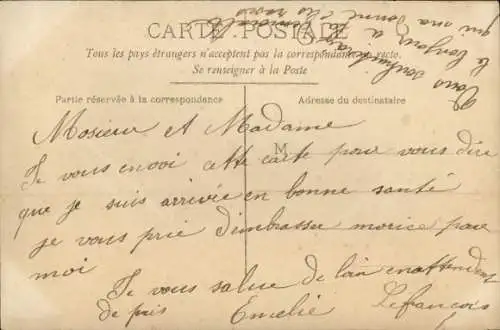 CARTE POSTALE
Tous les pays étrangers n'acceptent pas la correspondance au recto.
Se renseigner à la Poste
Partie réservée à la correspondance
Adresse du destinataire
M
Mosieur et Madame
Je vous envoi cette carte pour vous dire
que je suis arrivée en bonne santé
je vous prie d'imbrasser morice pour
moi
Je vous salue de loin enattendant
de près
Emelie Lefrancois
Vous
le bonjour a
qui ma donné des